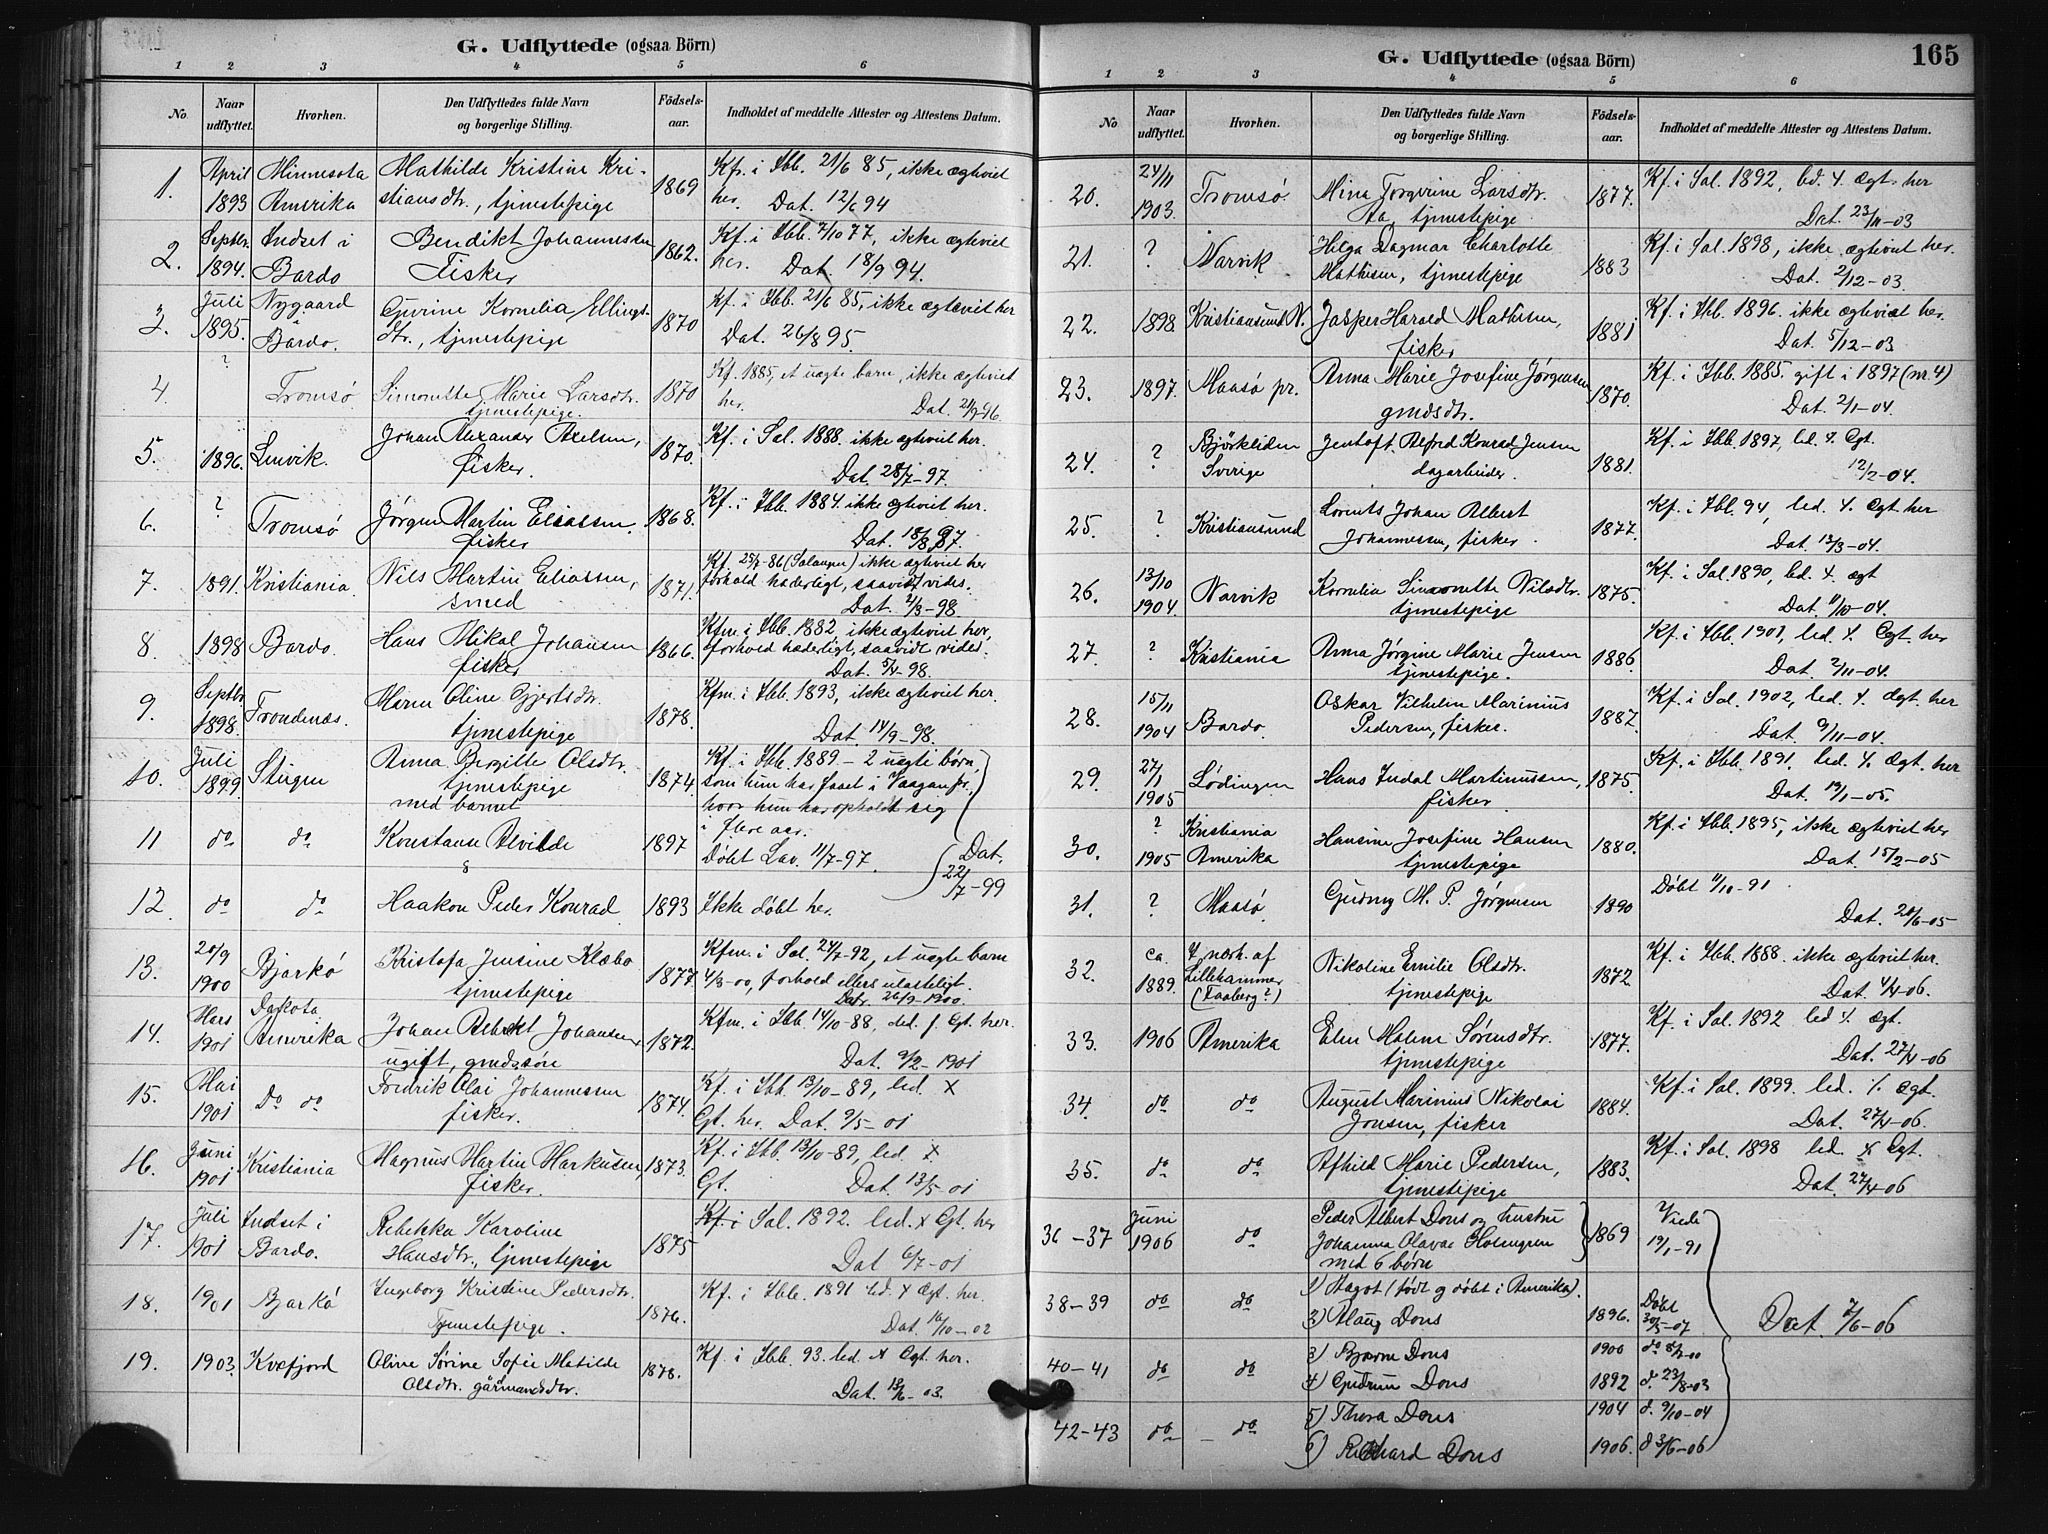 G. Udflyttede (ogsaa Börn)
1 2 3 4 5 6
No. Naar udflyttet. Hvorhen. Den Udflyttedes fulde Navn og borgerlige Stilling. Födselsaar. Indholdet af meddelte Attester og Attestens Datum.
1. April Minnesota Mathilde Kristine Kri- 1869 Kf. i Ibb. 21/6 85, ikke ægteviet
1893 Amerika stiansdtr., tjenestepige her. Dat. 12/6 94
2. Septbr. Indset i Bendikt Johannessen 1862. Kf. i Ibb. 7/10 77, ikke ægteviet
1894. Bardo Fisker her. Dat. 18/9 94.
3. Juli Nygaard Gurine Kornelia Ellings- 1870 Kf. i Ibb. 21/6 85, ikke ægteviet her
1895. Bardo. dtr., tjenestepige Dat. 26/8 95.
4 ? Tromsø Simonette Marie Larsdtr. 1870 Kf. 1885, et uægte barn, ikke ægteviet
tjenestepige. her. Dat. 21/9-96.
5. 1896. Lenvik. Johan Alexander Axelsen, 1870. Kf. i Sal. 1888. ikke ægteviet her.
fisker. Dat. 28/7-97.
6. ? Tromsø Jørgen Martin Eliassen 1868. Kf. i Ibb. 1884. ikke ægteviet her.
fisker Dat. 18/8 97.
7. 1891. Kristiania. Nils Martin Eliassen, 1871. Kf. 25/7-86 (Salangen) ikke ægteviet her
smed forhold hæderligt, saavidt vides.
Dat. 2/3-98
8. 1898 Bardo. Hans Mikal Johansen 1866. Kfm. i Ibb. 1882, ikke ægteviet her,
fisker forhold hæderligt, saavidt vides.
Dat. 5/4-98.
9. Septbr. Trondenæs. Maren Oline Gjertsdtr. 1878. Kfm. i Ibb. 1893, ikke ægteviet her.
1898. tjenestepige Dat. 14/9-98.
10. Juli Steigen Anna Bergitte Olsdtr. 1874 Kf. i Ibb. 1889 - 2 uægte børn,
1899 tjenestepige som hun har faaet i Vaagan pr.,
med barnet hvor hun har opholdt sig
i flere aar.
11 do do Konstanse Alvilde 1897 Døbt Lav. 11/7-97. Dat.
& 22/7-99
12. do do Haakon Peder Konrad 1893 Ikke døbt her.
13. 20/9 Bjarkö Kristofa Jensine Klæbo 1877 Kfm. i Sal. 24/7-92, et uægte barn
1900 tjenestepige 4/3-00, forhold ellers ulasteligt.
Dat. 26/9-1900.
14. Mars Dakota Johan Albrekt Johansen 1872. Kfm. i Ibb. 14/10-88, led. f. Ægt. her.
1901 Amerika ugift, gmdssøn Dat. 9/2-1901
15. Mai do do Fredrik Olai Johannessen 1874. Kf. i Ibb. 13/10-89, led. ⁒
1901 fisker. Gt. her. Dat. 9/5-01
16. Juni Kristiania Magnus Martin Markusen, 1873. Kf. i Ibb. 13/10-89, led. ⁒
1901 fisker. Gt. Dat. 13/5-01
17. Juli Indset i Rebekka Karoline 1875 Kf. i Sal. 1892. led. ⁒ Gt. her
1901 Bardo. Hansdtr., tjenestepige Dat. 6/7-01
18. 1901 Bjarkö Ingeborg Kristine Pedersdtr. 1876. Kf. i Ibb. 1891 led. ⁒ Ægt. her.
Tjenestepige. Dat. 16/10-02
19. 1903. Kvæfjord Oline Sørine Sofie Matilde 1878. Kf. i Ibb. 93. led. ⁒ Ægt. her.
Olsdtr. gårmandsdtr. Dat. 18/6-03.
G. Udflyttede (ogsaa Börn) 165
1 2 3 4 5 6
No Naar udflyttet. Hvorhen. Den Udflyttedes fulde Navn og borgerlige Stilling. Födselsaar. Indholdet af meddelte Attester og Attestens Datum.
20. 24/11 Tromsø Mina Jørgrine Larsdtr. 1877. Kf. i Sal. 1892, led. ⁒. Ægt. her
1903. tjenestepige Dat. 23/11-03
21. ? Narvik Helga Dagmar Charlotte 1883 Kf. i Sal. 1898, ikke ægteviet her.
Mathisen, tjenestepige Dat. 2/12-03.
22. 1898. Kristiansund N. Jasper Harald Mathisen, 1881 Kf. i Ibb. 1896. ikke ægteviet her.
fisker Dat. 5/12-03
23. 1897. Maasø pr. Anna Marie Josefine Jørgensen 1870. Kf. i Ibb. 1885. gift i 1897 (nr. 4)
gmdsdtr. Dat. 2/1-04.
24. ? Bjørkliden Jentoft Alfred Konrad Jensen 1881. Kf. i Ibb. 1897, led. ⁒. Ægt.
Sverige dagarbeider 12/2-04.
25. ? Kristiansund Lorents Johan Albert 1877. Kf. i Ibb. 94, led. ⁒. Ægt. her
Johannessen, fisker. Dat. 13/3-04.
26. 13/10 Narvik Kornelia Simonette Nilsdtr. 1875. Kf. i Sal. 1890, led. ⁒. Ægt
1904. tjenestepige Dat. 11/10-04.
27. ? Kristiania Anna Jørgine Marie Jensen 1886. Kf. i Ibb. 1901, led. ⁒. Ægt. her
tjenestepige. Dat. 2/11-04.
28. 15/11 Bardo. Oskar Vilhelm Marinius 1887. Kf. i Sal. 1902, led. ⁒. Ægt. her
1904 Pedersen, fisker. Dat. 9/11-04.
29. 27/1 Lödingen Hans Indal Martinussen, 1875. Kf. i Ibb. 1891. led. ⁒. Ægt. her
1905 fisker. Dat. 19/1-05.
30. ? Kristiania Hansine Josefine Hansen 1880. Kf. i Ibb. 1895, ikke ægteviet her
1905 Amerika tjenestepige Dat. 15/2-05
31. ? Maasø. Gudny M. P. Jørgensen 1890 Døbt 11/10-91
Dat. 20/6-05
32. ca. I nærh. af Nikoline Emilie Olsdtr. 1872. Kf. i Ibb. 1888. ikke ægteviet her.
1889. Lillehammer tjenestepige Dat. 4/4-06.
(Faaberg?)
33. 1906 Amerika Elen Malene Sørensdtr. 1877. Kf. i Sal. 1892 led ⁒. Ægt.
tjenestepige Dat. 27/4-06
34. do do August Marinius Nikolai 1884. Kf. i Sal. 1899. led. ⁒. Ægt.
Jensen, fisker Dat. 27/4-06.
35. do do Afhild Marie Pedersen, 1883. Kf. i Sal. 1898 led. ⁒ Ægt.
tjenestepige Dat. 27/4-06
36-37 Juni do Peder Albert Dons og hustru 1869 Viede
1906 Johanna Olava Holmgren 19/1-91
med 6 børn
38-39 do do 1) Aagot (født og døbt i Amerika). Dat. 2/6-06
2) Alaug Dons 1896. Døbt 30/5-07
40-41 do do 3) Bjarne Dons 1900 do 8/7-00
4) Gudrun Dons 1892 d. 23/8-03
42-43 do do 5) Thora Dons 1904 d. 9/10-04
6) Richard Dons 1906. d 3/6-06